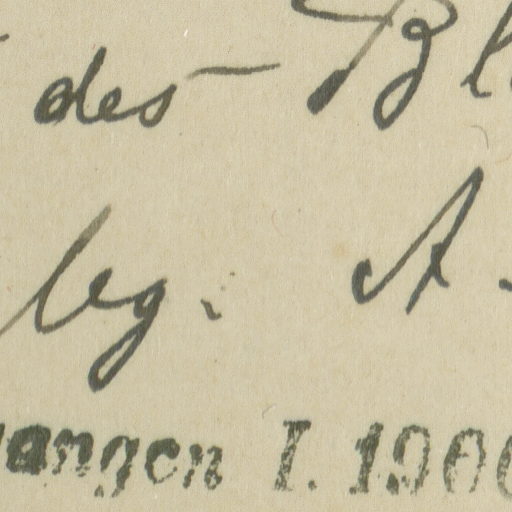 des Bl
leg. A.
angen I. 190